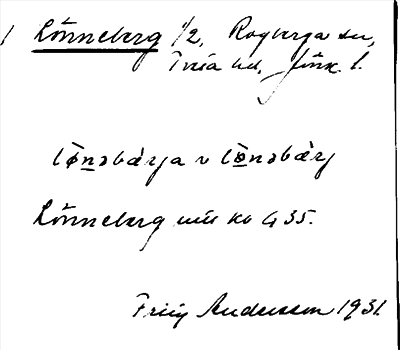 1 Lönneberg 1/2, Rogberga sn,
Tveta hd, Jönk. l.
lønəbärja v lønəbärj
Lönneberg KB G 35.
Andersson 1931.